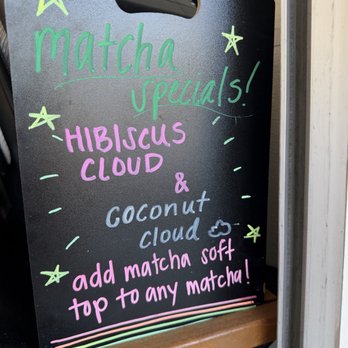 matcha
specials!
HIBISCUS
CLOUD
&
coconut
cloud
add matcha soft
top to any matcha!